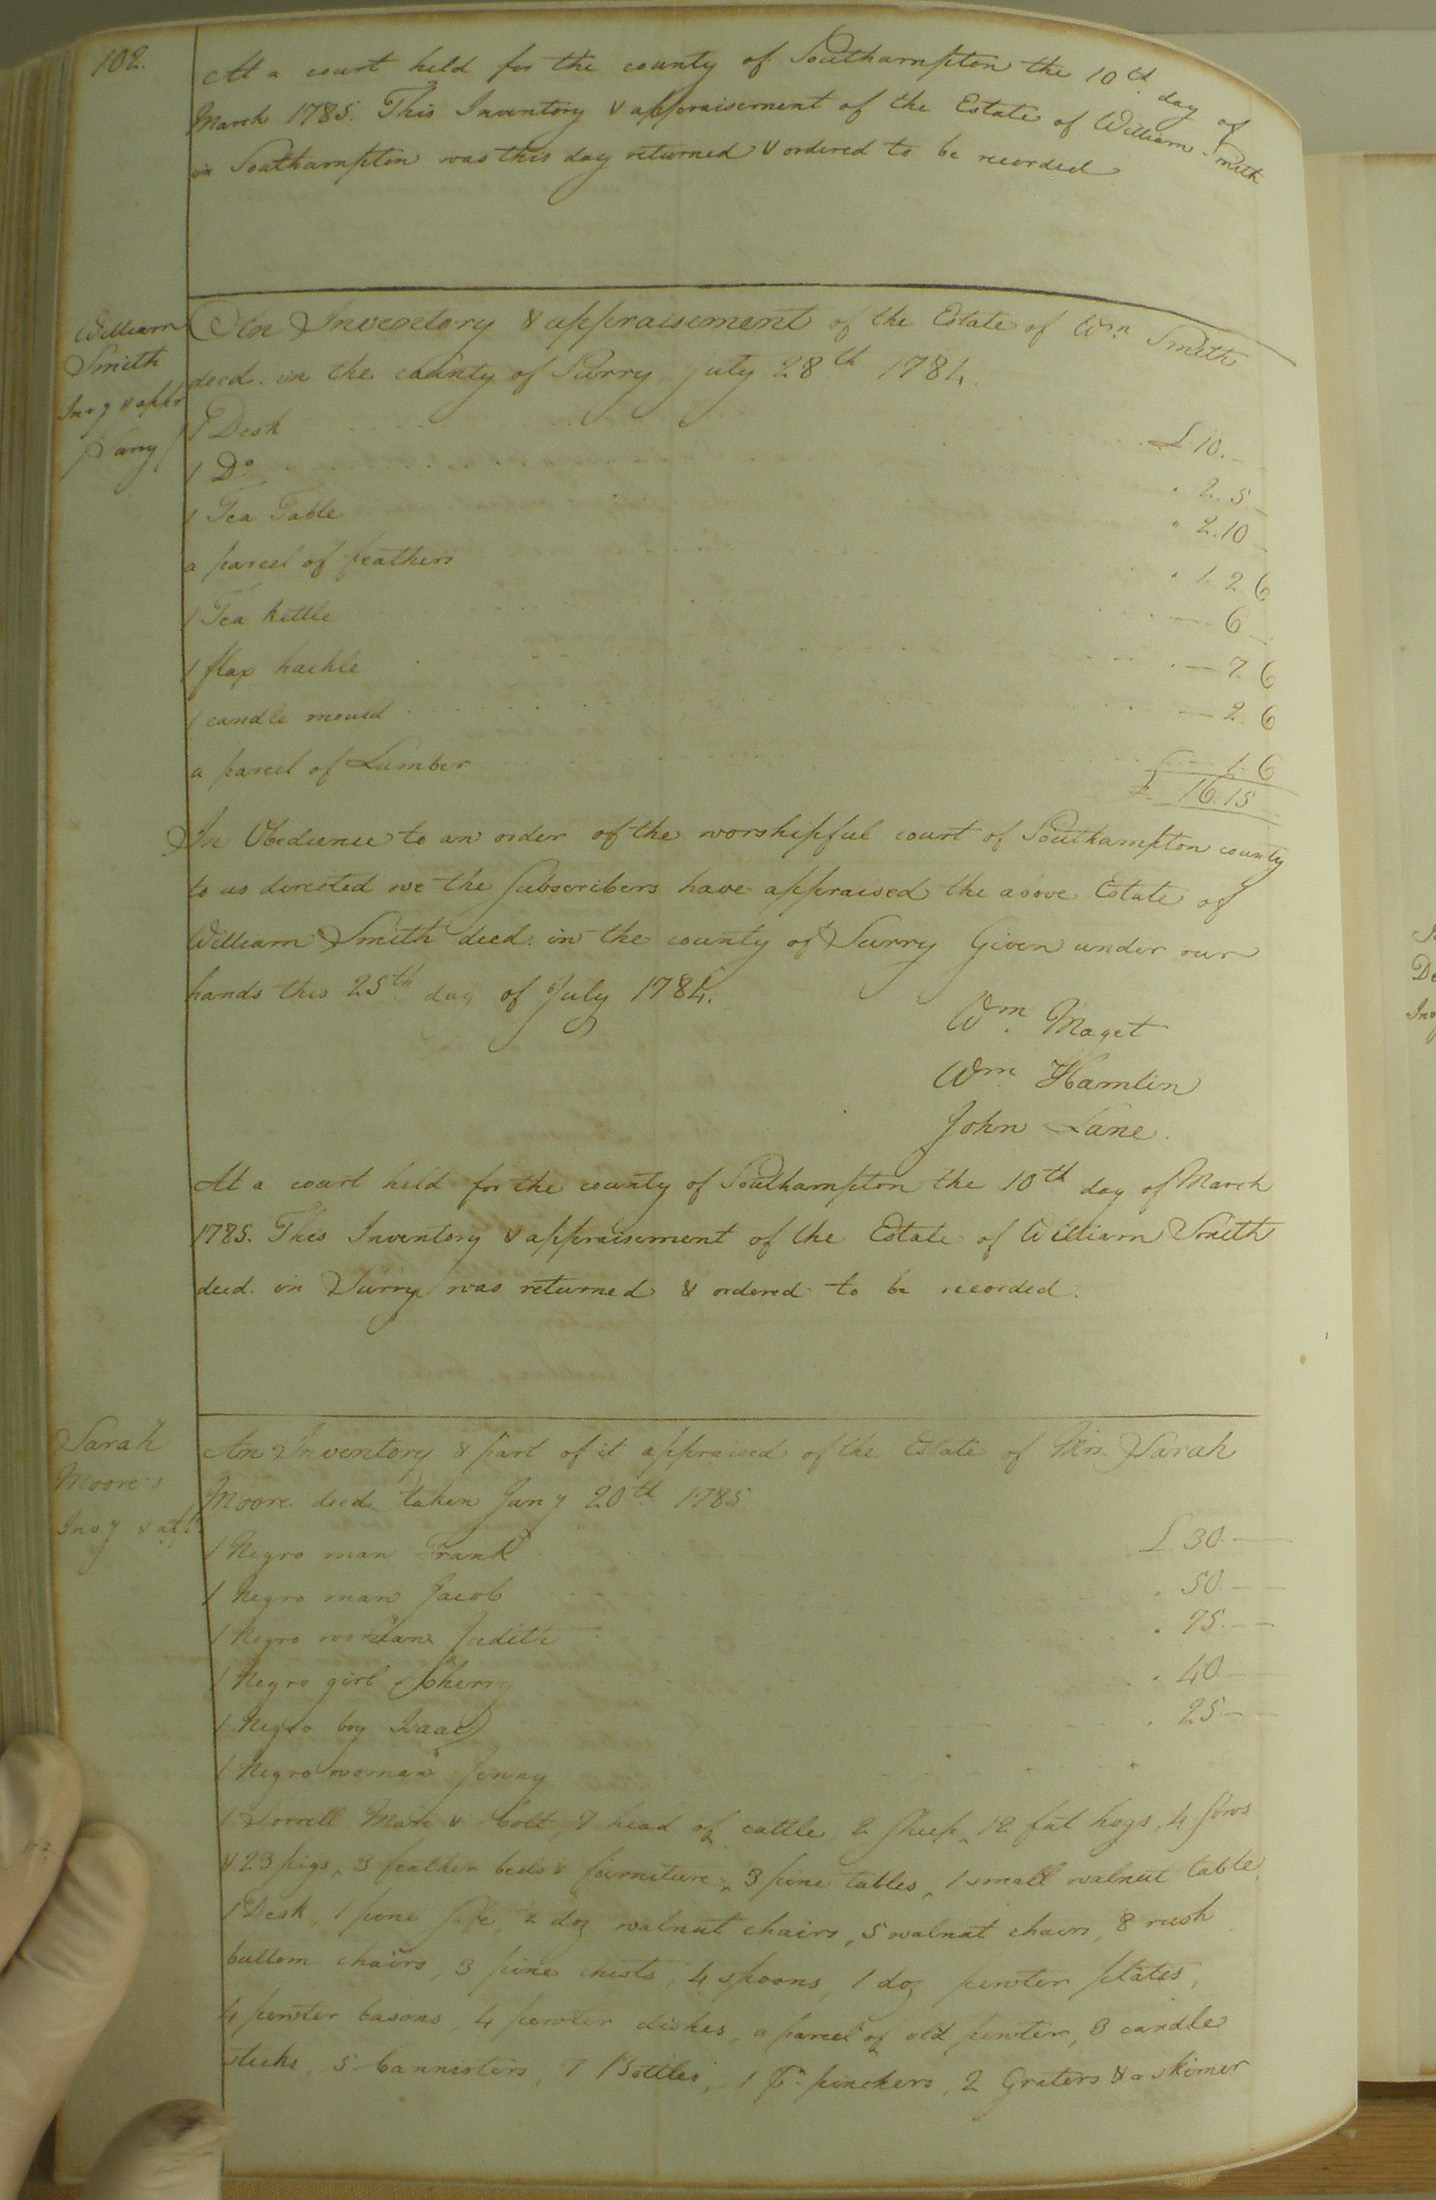 102.
At a court held for the county of Southampton the 10th day of
March 1785. This Inventory & appraisement of the Estate of William Smith
in Southampton was this day returned & ordered to be recorded
William
Smith
Invy & appt
Surry
An Inventory & appraisement of the Estate of Wm Smith
decd. in the county of Surry July 28th 1784.
1 Desk £ 10. —
1 Do 2. 5 —
1 Tea Table 2. 10 —
a parcel of feathers 1. 2. 6
1 Tea kettle — 6 —
1 flax hackle — 7. 6
1 candle mould — 2. 6
a parcel of Lumber — 1. 6
£ 16. 15
In Obedience to an order of the worshipful court of Southampton county
to us directed we the Subscribers have appraised the above Estate of
William Smith decd. in the county of Surry Given under our
hands this 25th day of July 1784.
Wm Maget
Wm Hamlin
John Lane.
At a court held for the county of Southampton the 10th day of March
1785. This Inventory & appraisement of the Estate of William Smith
decd. in Surry was returned & ordered to be recorded.
Sarah
Moore's
Invy & appt
An Inventory & part of it appraised of the Estate of Mrs Sarah
Moore decd taken Jany 20th 1785
1 Negro man Frank £ 30. —
1 Negro man Jacob 50. —
1 Negro woman Judith 75. —
1 Negro girl Cherry 40 —
1 Negro boy Isaac 25. —
1 Negro woman Jenny
1 Sorrell Mare & Colt, 7 head of cattle, 2 Sheep, 12 fat hogs, 4 Sows
& 23 pigs, 3 feather beds & furniture, 3 pine tables, 1 small walnut table,
1 Desk, 1 pine safe, ½ doz walnut chairs, 5 walnut chairs, 8 rush
buttom chairs, 3 pine chests, 4 spoons, 1 doz pewter plates,
4 pewter basons, 4 pewter dishes, a parcel of old pewter, 3 candle
sticks, 5 cannisters, 7 Bottles, 1 pr. pinchers, 2 Graters & a skimer